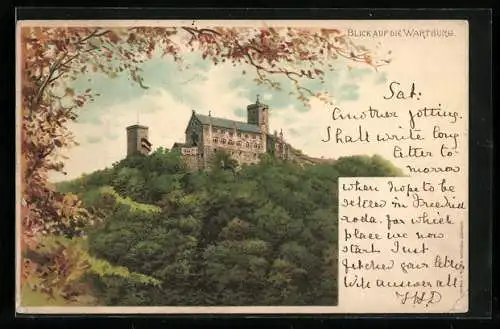 BLICK AUF DIE WARTBURG.
Sat:
Another jotting.
Shall write long
letter to-
morrow
when hope to be
settled in Friedrich
roda. for which
place we now
start Just
fetched your letters
Will answer all.